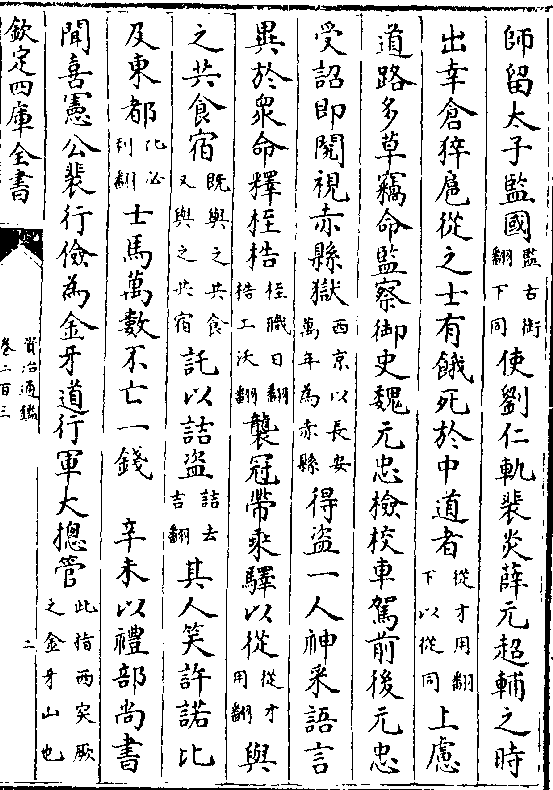 師留太子監國監古銜翻下同使劉仁軌裴炎薛元超輔之時
出幸倉猝扈從之士有餓死於中道者從才用翻下以從同上慮
道路多草竊命監察御史魏元忠檢校車駕前後元忠
受詔即閱視赤縣獄西京以長安萬年為赤縣得盜一人神采語言
異於衆命釋桎梏桎職日翻梏工沃翻襲冠帶乘驛以從從才用翻與
之共食宿既與之共食又與之共宿託以詰盜詰去吉翻其人笑許諾比
及東都比必利翻士馬萬數不亡一錢 辛未以禮部尚書
聞喜憲公裴行儉為金牙道行軍大摠管此指西突厥之金牙山也
欽定四庫全書
資治通鑑
卷二百三
二